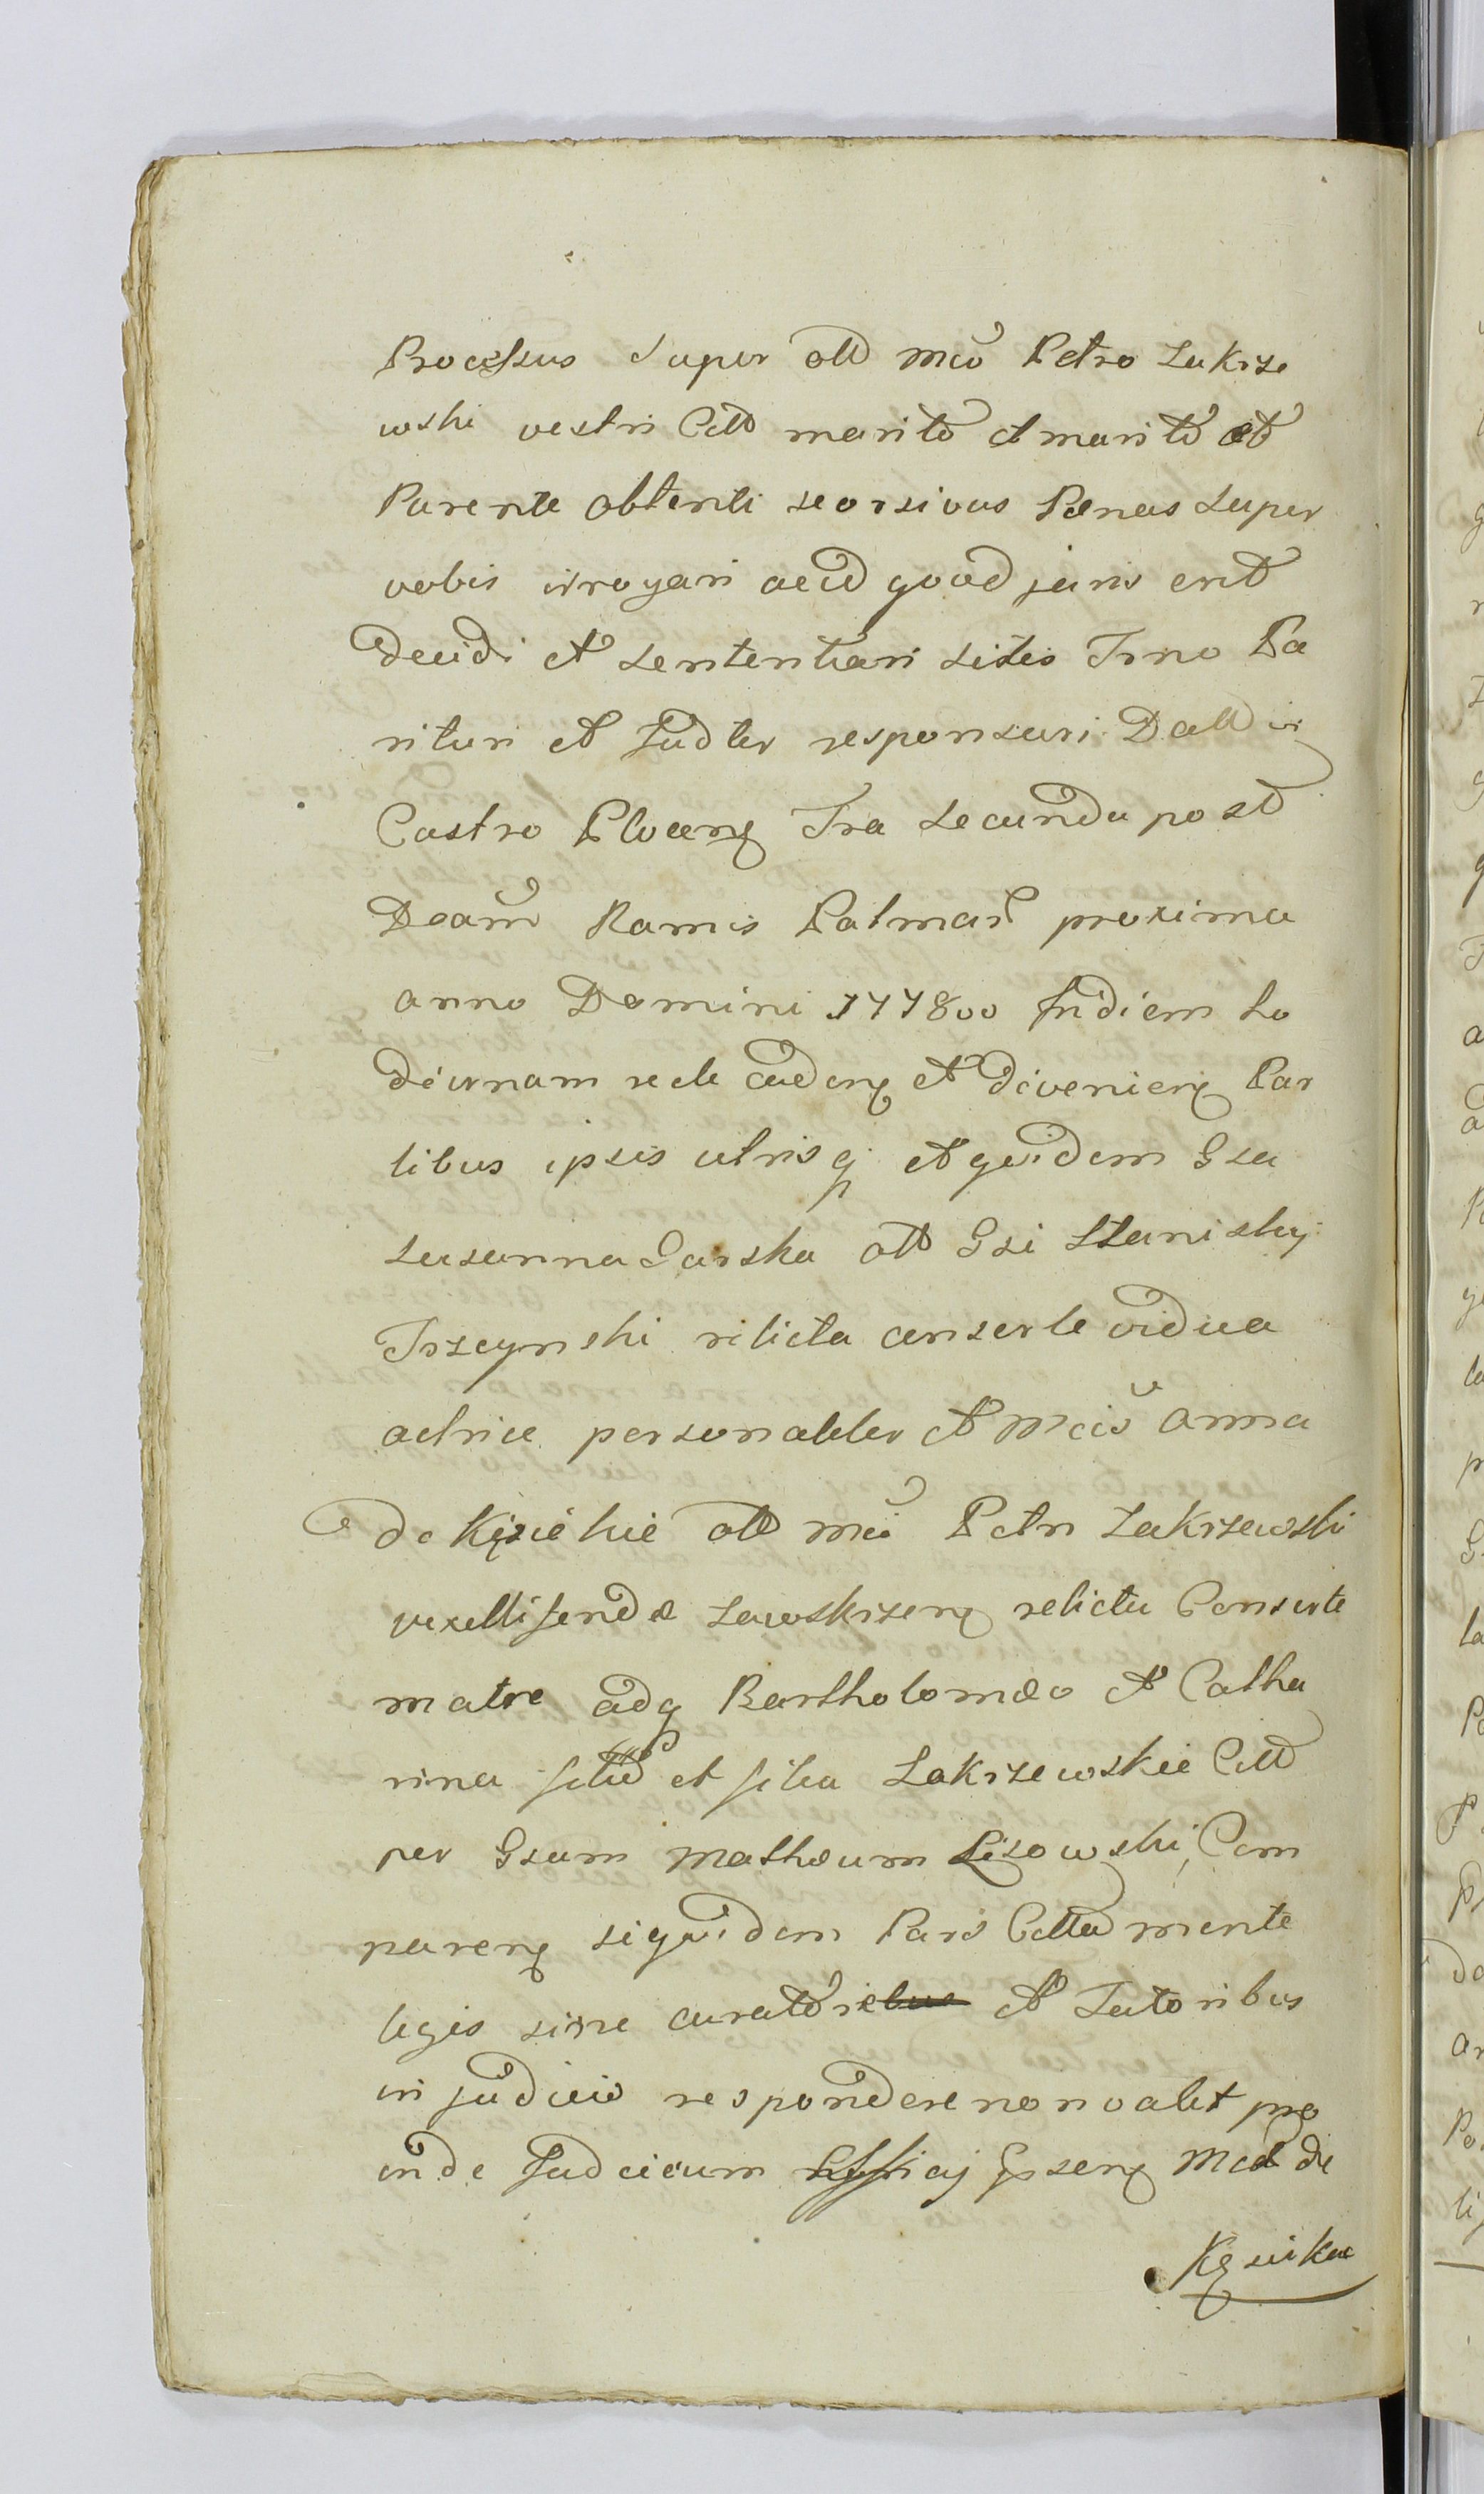 Processus super oll mco Petro Zakrze
wski vestri Citt marito et marito et
Parente obtenti seorsivas Pænas super
vobis irrogari aeid quod juris erit
decidi et sententiari sitis Trno Pa
rituri et Judler responsuri Datt in
Castro Plocenq Fra secunda post
Dcam Ramis Palmar proxima
anno Domini 177800 In diem ho
diernam recte cadenq et divenienq Par
tibus ipsis utrisq et quidem Gsa
Susanna Garska oll Gsi Stanislaj
Trzcynski relicta conserte vidua
actrice personaliter et Mcis Anna
de Kęsickie oll mci Petri Zakrzewski
vexilliferidæ Zawskrzenq relicta Conserte
matre adq Bartholomæo et Catha
rina filio et filia Zakrzewskie Citt
per Gsum Mathæum Lisowski Com
parenq siquidem Pars Citta mente
legis sine curatorie et Tutoribus
in judicio respondere non valet pro
inde Judicium Gpsenq Mcæ de
Kęsickie